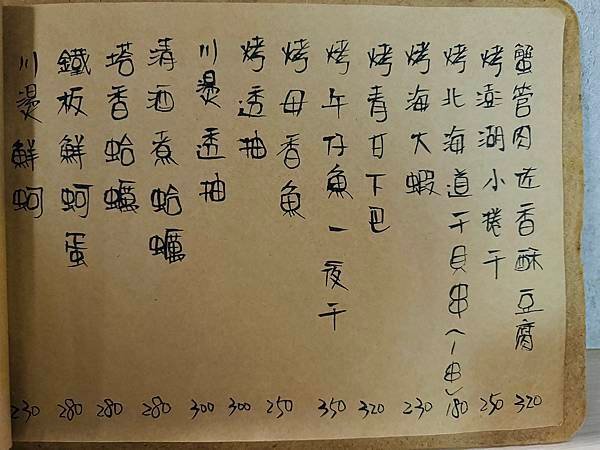 蟹管肉佐香酥豆腐 320
烤澎湖小捲干 250
烤北海道干貝串(一串) 180
烤海大蝦 230
烤青甘下巴 320
烤午仔魚一夜干 350
烤母香魚 250
烤透抽 300
川燙透抽 300
清酒煮蛤蠣 280
塔香蛤蠣 280
鐵板鮮蚵蛋 280
川燙鮮蚵 230